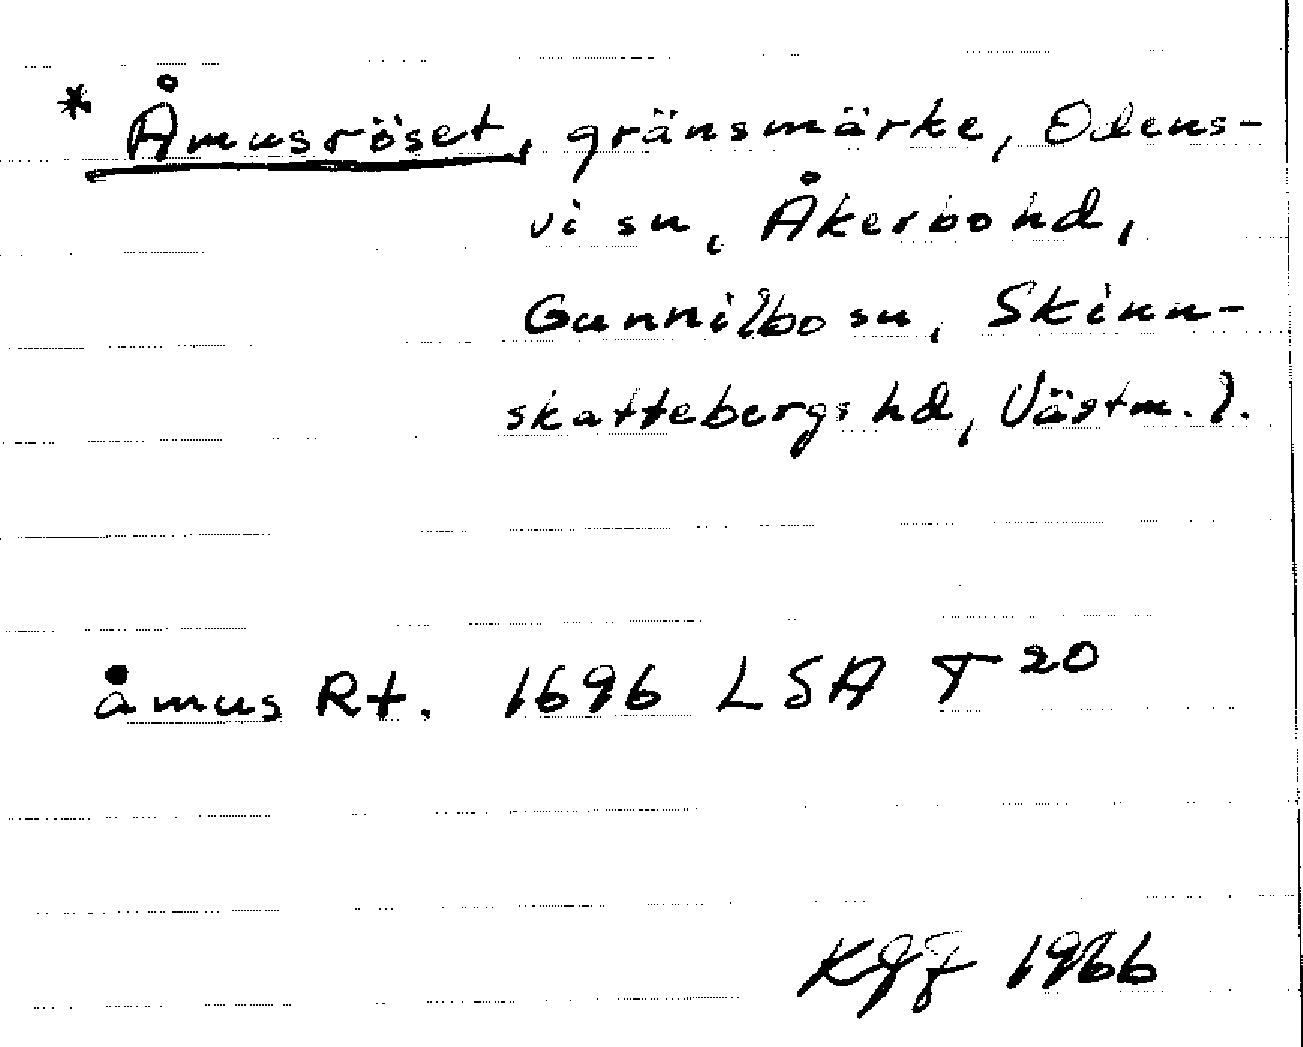 * Åmusröset, gränsmärke, Odens-
vi sn, Åkerbo hd,
Gunnilbo sn, Skinn-
skattebergs hd, Västm. l.
åmus Rt. 1696 LSA T 20
1966